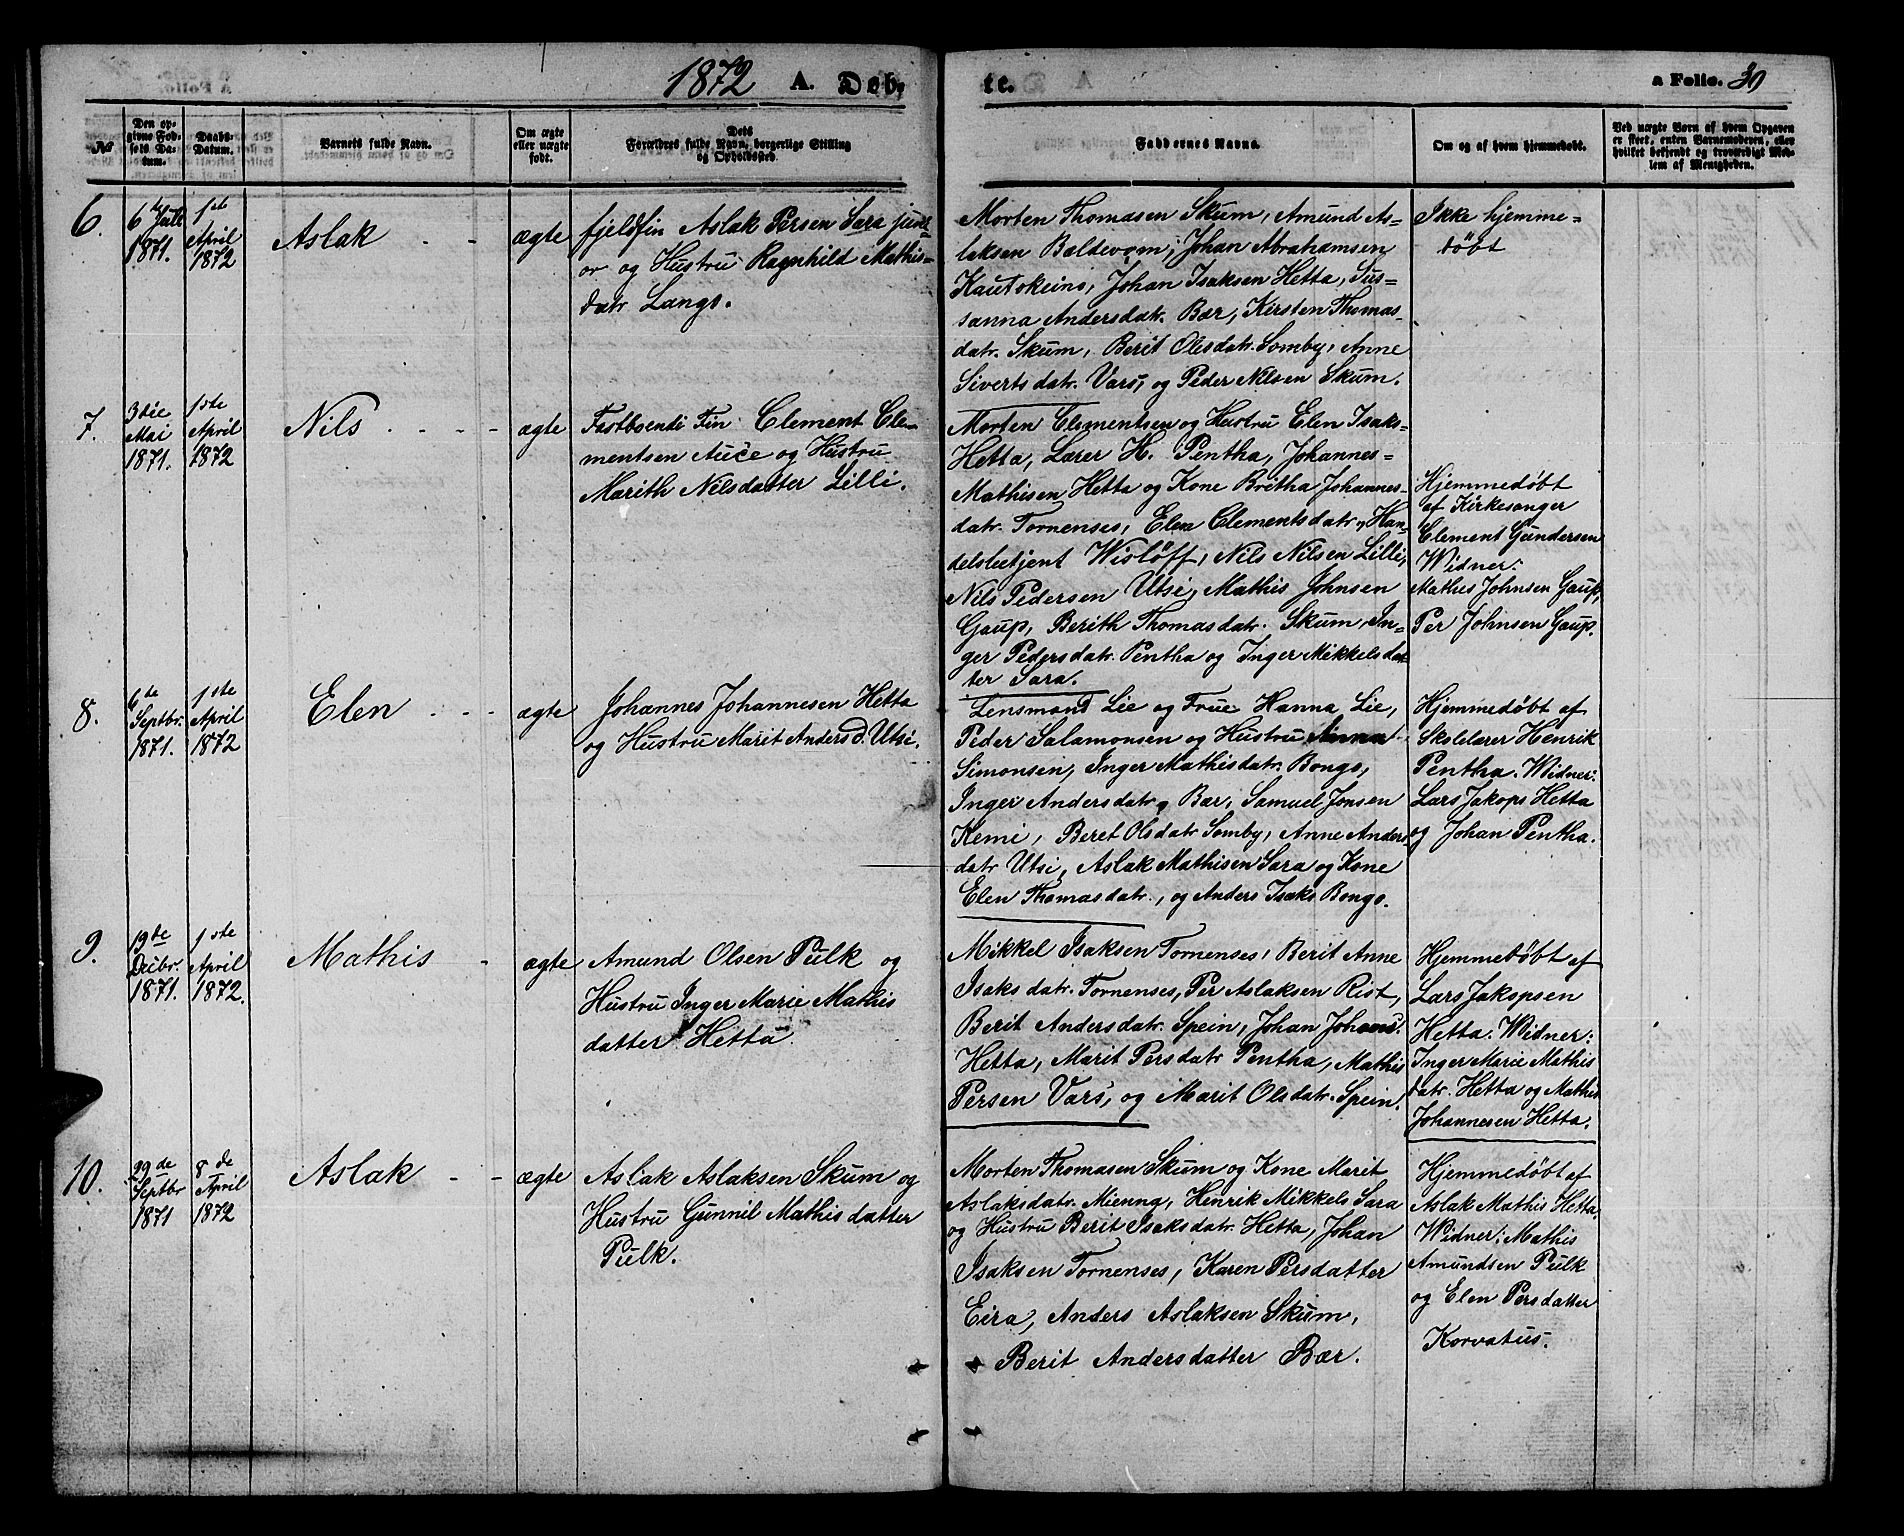 1872 A. Døb-
te. a Folio. 30
No
Den op-
givne Fød-
sels Da-
tum.
Daabs-
Datum.
Barnets fulde Navn.
Om ægte
eller uægte
født.
Dets
Forældres fulde Navn, borgerlige Stilling
og Opholdssted.
Faddernes Navne.
Om og af hvem hjemmedøbt.
Ved uægte Børn af hvem Opgaven
er skeet, enten Barnemoderen, eller
hvilket bekjendt og troværdigt Med-
lem af Menigheden.
6.
6te Juli
1871.
1ste
April
1872
Aslak
ægte
fjeldfin Aslak Persen Sara juni-
or og Hustru Ragnhild Mathis-
datr Lango.
Morten Thomasen Skum, Amund As-
laksen Baldevom, Johan Abrahamsen
Kautokeino, Johan Isaksen Hetta, Sus-
sanna Andersdatr. Bær, Kirsten Thomas-
datr. Skum, Berit Olesdatr. Somby, Anne
Sivertsdatr. Vars, og Peder Nilsen Skum.
Ikke hjemme-
døbt
7.
3die
Mai
1871.
1ste
April
1872
Nils
ægte
Fastboende Fin Clement Cle-
mentsen Auce og Hustru
Marith Nilsdatter Lilli.
Morten Clementsen og Hustru Elen Isaks-
Hetta, Lærer H. Pentha, Johannes-
Mathisen Hetta og Kone Britha Johannes-
datr. Tornenses, Elen Clementsdatr., Han-
delsbetjent Wisløff, Nils Nilsen Lilli,
Nils Pedersen Utsi, Mathis Johnsen
Gaup, Berith Thomasdatr. Skum, In-
ger Pedersdatr. Pentha og Inger Mikkelsdat-
ter Sara.
Hjemmedøbt
af Kirkesanger
Clement Gundersen
Widner:
Mathis Johnsen Gaup,
Per Johnsen Gaup.
8.
6te
Septbr.
1871.
1ste
April
1872
Elen
ægte
Johannes Johannesen Hetta
og Hustru Marit Anders D. Utsi.
Lensmand Lie og Frue Hanna Lie,
Peder Salamonsen og Hustru Anna
Simonsen, Inger Mathisdatr. Bongo,
Inger Andersdatr. Bær, Samuel Jonsen
Kemi, Beret Olsdatr Somby, Anne Anders-
datr Utsi, Aslak Mathisen Sara og Kone
Elen Thomasdatr., og Anders Isaks Bongo.
Hjemmedøbt af
Skolelærer Henrik
Pentha. Widner:
Lars Jakops Hetta
og Johan Pentha.
9.
19de
Decbr.
1871.
1ste
April
1872.
Mathis
ægte
Amund Olsen Pulk og
Hustru Inger Marie Mathis
datter Hetta
Mikkel Isaksen Tornenses, Berit Anne
Isaksdatr. Tornenses, Per Aslaksen Rist,
Berit Andersdatr. Spein, Johan Johans.
Hetta, Marit Persdatr Pentha, Mathis
Persen Vars, og Marit Olsdatr. Spein.
Hjemmedøbt af
Lars Jakopsen
Hetta. Widner:
Inger Marie Mathis
datr. Hetta og Mathis
Johannesen Hetta.
10.
29de
Septbr
1871
8de
April
1872
Aslak
ægte
Aslak Aslaksen Skum og
Hustru Gunnil Mathisdatter
Pulk.
Morten Thomasen Skum og Kone Marit
Aslaksdatr. Mienng, Henrik Mikkels Sara
og Hustru Berit Isaksdatr. Hetta, Johan
Isaksen Tornenses, Karen Persdatter
Eira, Anders Aslaksen Skum,
Berit Andersdatter Bær.
Hjemmedøbt af
Aslak Mathis Hetta.
Widner: Mathis
Amundsen Pulk
og Elen Persdatter
Korvatus.